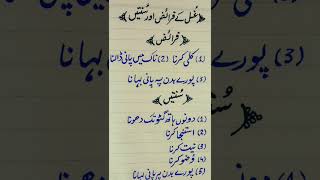 غسل کے فرائض اور سنتیں
فرائض
(1) کلی کرنا (2) ناک میں پانی ڈالنا
(3) پورے بدن پہ پانی بہانا
سنتیں
(1) دونوں ہاتھ گٹوں تک دھونا
(2) استنجا کرنا
(3) نیت کرنا
(4) وضو کرنا
(5) پورے بدن پر پانی بہانا